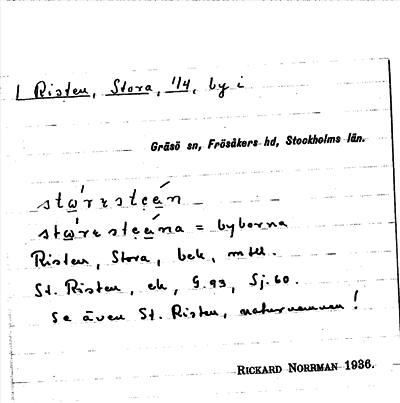 Risten, Stora, 1/4, by i
Gräsö sn, Frösåkers hd, Stockholms län.
= byborna
Risten, Stora, bek, mtl.
St. Risten, ek, G.93, Sj.60.
Se även St. Risten, naturnamnen!
RICKARD NORRMAN 1936.